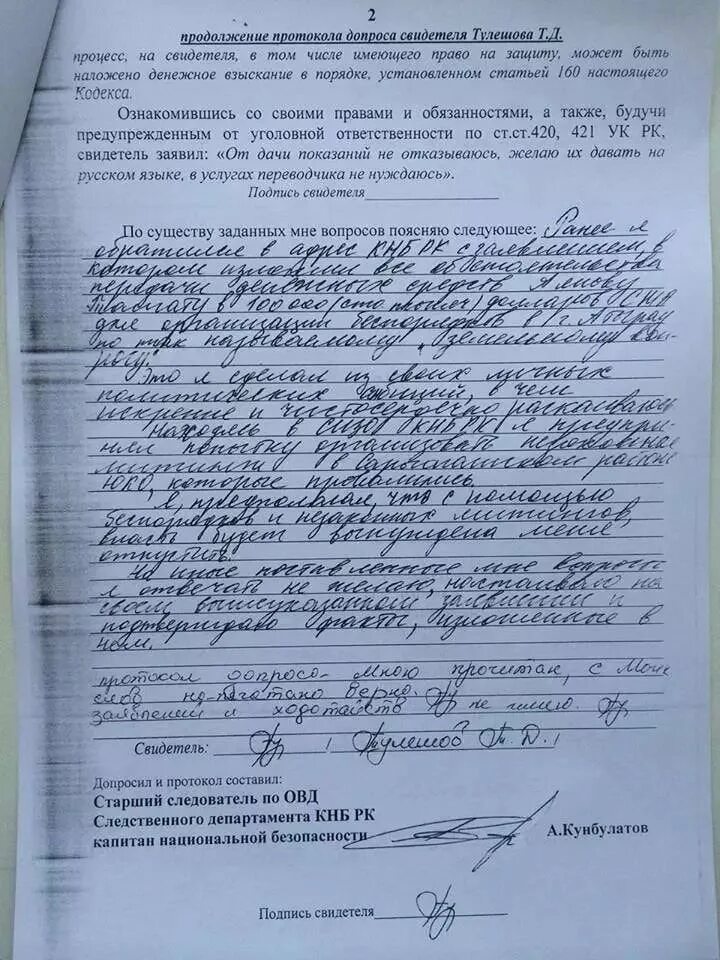 2
продолжение протокола допроса свидетеля Тулешова Т.Д.
процесс, на свидетеля, в том числе имеющего право на защиту, может быть
наложено денежное взыскание в порядке, установленном статьей 160 настоящего
Кодекса.
Ознакомившись со своими правами и обязанностями, а также, будучи
предупрежденным от уголовной ответственности по ст.ст.420, 421 УК РК,
свидетель заявил: «От дачи показаний не отказываюсь, желаю их давать на
русском языке, в услугах переводчика не нуждаюсь».
Подпись свидетеля
По существу заданных мне вопросов поясняю следующее: Ранее я
обратился в адрес КНБ РК с заявлением, в
котором изложил все обстоятельства
передачи денежных средств Аянову
Талгату в 100 000 (сто тысяч) долларов США
для организации беспорядков в г. Атырау
по так называемому „земельному воп-
росу".
Это я сделал из своих личных
политических амбиций, в чем
искренне и чистосердечно раскаиваюсь
Находясь в СИЗО КНБ РК я предпри-
нял попытку организовать незаконные
митинги в Сарыагашском районе
ЮКО, которые провалились.
Я, предполагал, что с помощью
беспорядков и незаконных митингов,
власть будет вынуждена меня
отпустить.
На иные поставленные мне вопросы
я отвечать не желаю, настаиваю на
своем вышеуказанном заявлении и
подтверждаю факты, изложенные в
нем.
протокол допроса мною прочитан, с моих
слов напечатано верно.
заявлений и ходатайств не имею.
Свидетель: / Тулешов Т. Д. /
Допросил и протокол составил:
Старший следователь по ОВД
Следственного департамента КНБ РК
капитан национальной безопасности А.Кунбулатов
Подпись свидетеля